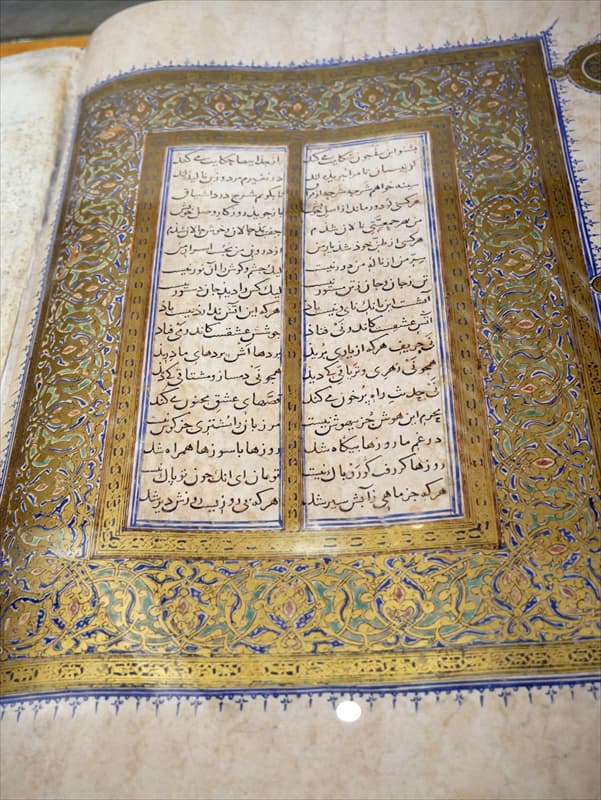 بشنو این نی چون شکایت می کند از جداییها حکایت می کند
کز نیستان تا مرا ببریده اند در نفیرم مرد و زن نالیده اند
سینه خواهم شرحه شرحه از فراق تا بگویم شرح درد اشتیاق
هر کسی کو دور ماند از اصل خویش باز جوید روزگار وصل خویش
من بهر جمعیتی نالان شدم جفت بدحالان و خوش حالان شدم
هر کسی از ظن خود شد یار من از درون من نجست اسرار من
سر من از ناله من دور نیست لیک چشم و گوش را آن نور نیست
تن ز جان و جان ز تن مستور نیست لیک کس را دید جان دستور نیست
آتشست این بانک نای و نیست باد هر که این آتش ندارد نیست باد
آتش عشقست کاندر نی فتاد جوشش عشقست کاندر می فتاد
نی حریف هر که از یاری برید پردهااش پردهای ما درید
همچو نی زهری و تریاقی کی دید همچو نی دمساز و مشتاقی کی دید
نی حدیث راه پر خون می کند قصهای عشق مجنون می کند
محرم این هوش جز بیهوش نیست مر زبان را مشتری جز گوش نیست
در غم ما روزها بیگاه شد روزها با سوزها همراه شد
روزها گر رفت گو رو باک نیست تو بمان ای آنک چون تو پاک نیست
هر که جز ماهی ز آبش سیر شد هر که بی روزیست روزش دیر شد